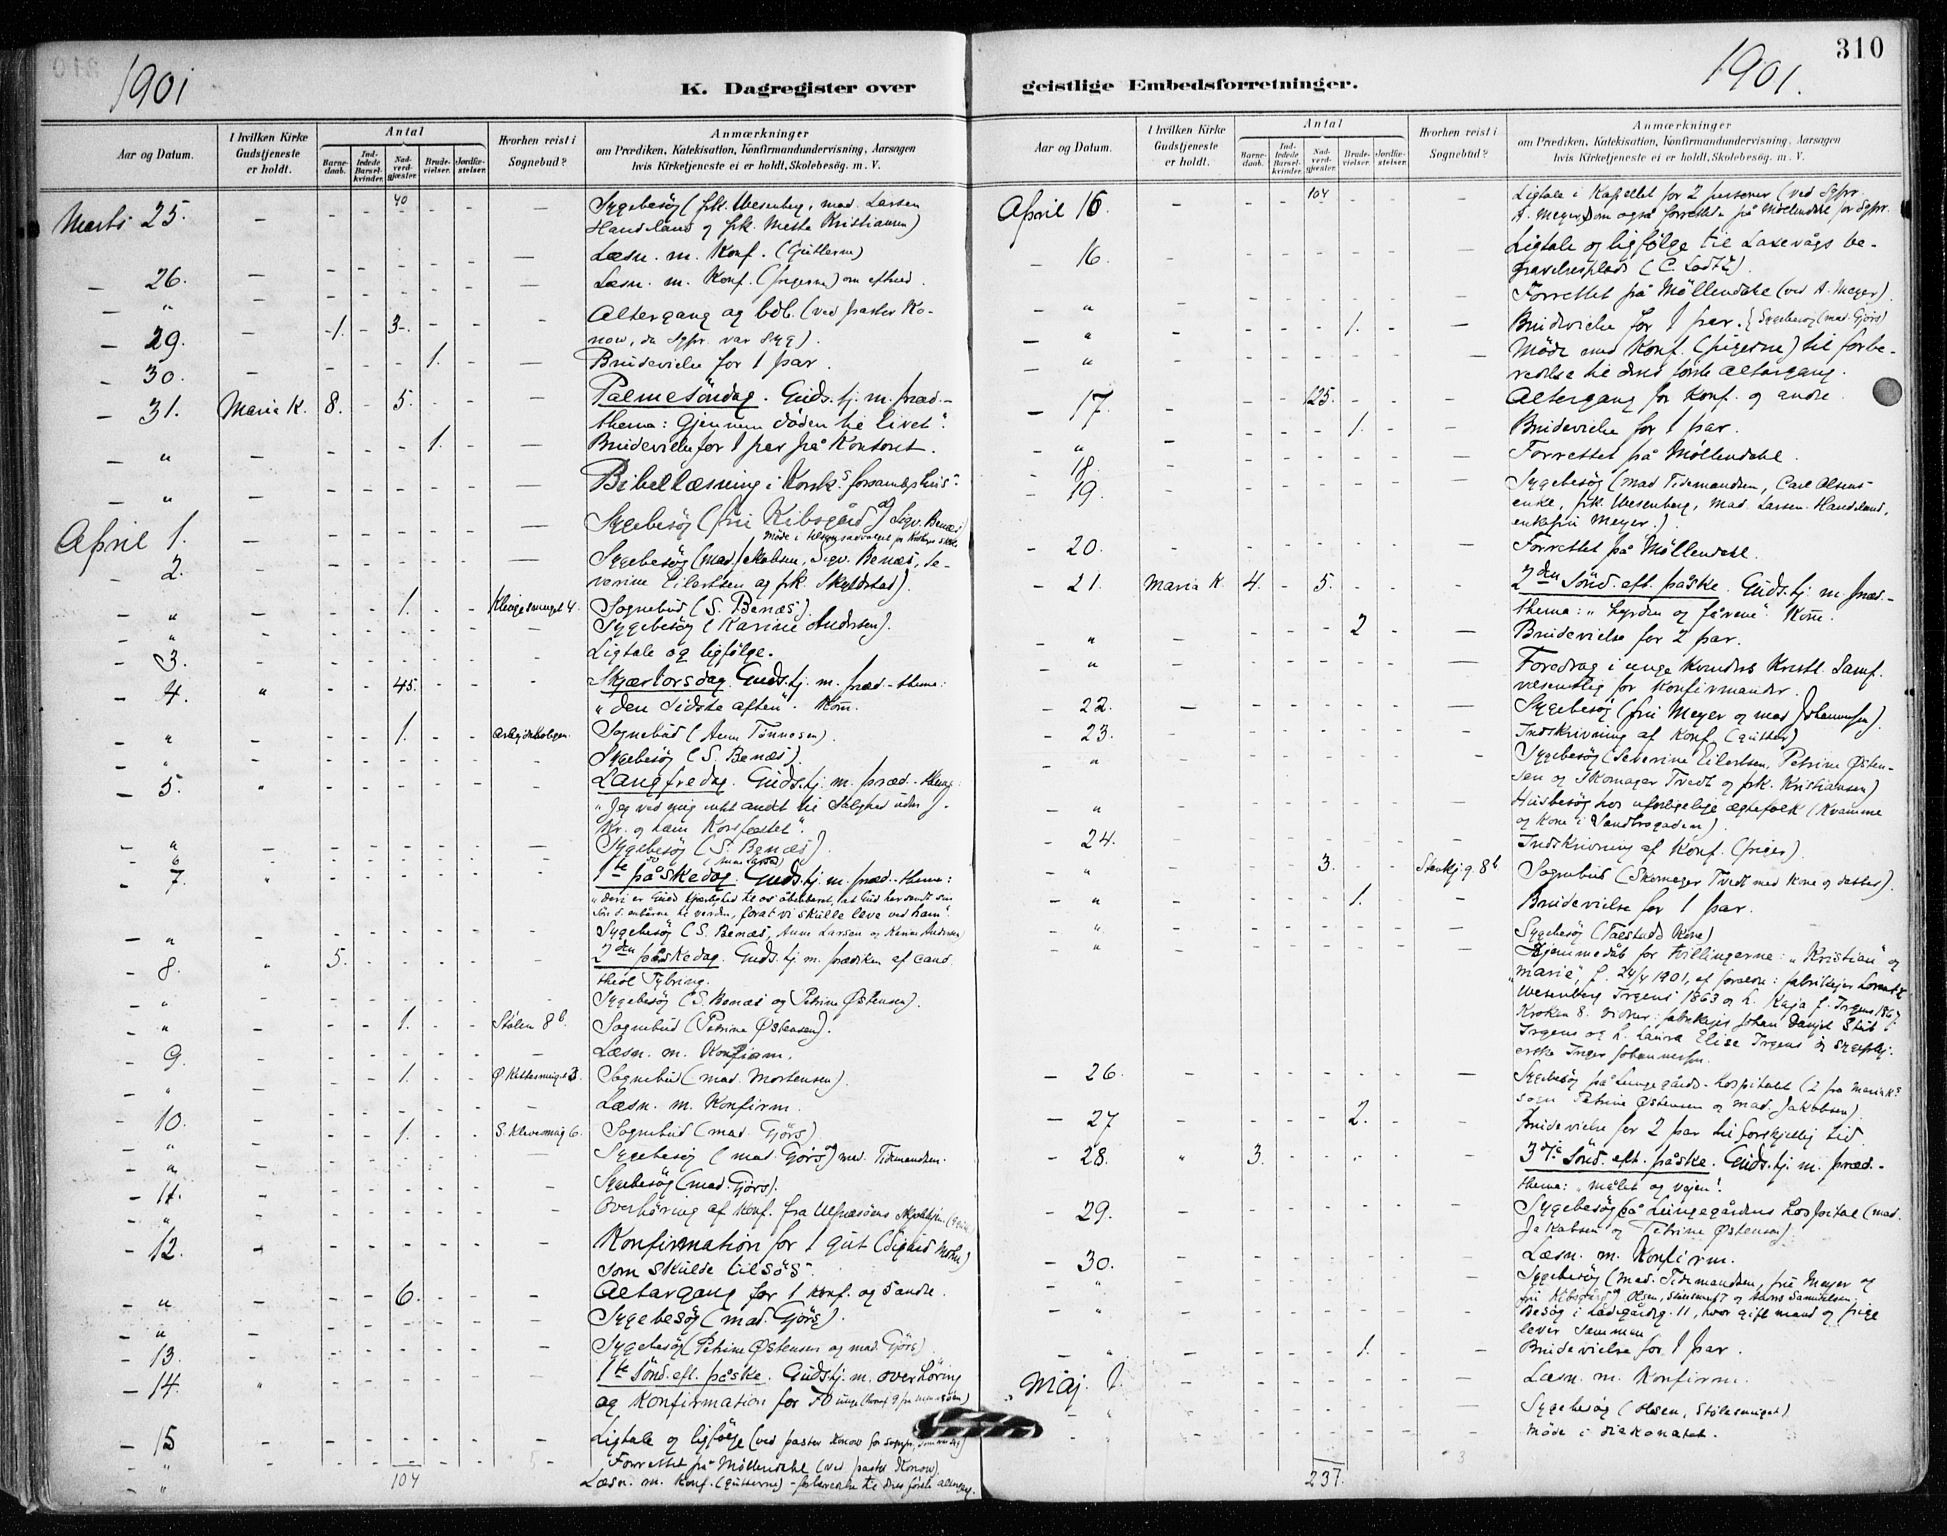 310
1901
1901.
K. Dagregister over
geistlige Embedsforretninger.
Aar og Datum.
I hvilken Kirke Gudstjeneste er holdt.
Antal
Barne-daab.
Ind-ledede Barsel-kvinder.
Nad-verd-gjæster.
Brude-vielser.
Jordfæ-stelser.
Hvorhen reist i Sognebud?
Anmærkninger
om Prædiken, Katekisation, Konfirmandundervisning, Aarsagen
hvis Kirketjeneste ei er holdt, Skolebesög. m. V.
40
Marts 25. Sygebesøg (frk. Wesenberg, mad. Larsen
Handeland og frk. Mette Kristiansen)
Læsn. m. Konf. (Gutterne)
26. Læsn. m. Konf. (pigerne) om efterm.
29. 1. 3. Altergang og bdb. (ved pastor Ko-
now, da Sgpr. var syg).
30. 1. Brudevielse for 1 par.
31. Maria K. 8. 5. Palmesöndag. Gudstj. m. præd.-
thema: Gjennem döden til livet".
" 1. Brudevielse for 1 par på Kontoret.
" Bibellæsning i Korsk.s forsamlghus".
April 1. Sygebesøg (fru Kibsgård og Sigv. Benæs)
2. Sygebesøg (mad. Jakobsen, Sigv. Benæs, Se-
verine Eilertsen og frk. Skyldstad).
" 1. Klingesmuget 4. Sognebud (S. Benæs).
" Sygebesøg (Karine Andersen).
3. Ligtale og ligfølge.
4. " 45. Skjærtorsdag. Gudstj. m. præd.-thema:
"den sidste aften". Kom.
" 1. Sognebud (Anna Tönnesen).
" Sygebesøg (S. Benæs).
5. " Langfredag. Gudstj. m. præd.-thema:
"Jeg ved mig intet andet til Salighed uden J.
Kr. og ham Korsfæstet".
" Sygebesøg (S. Benæs).
7. " 1ste påskedag. Gudstj. m. præd.-thema:
"deri er Guds kjærlighed til os åbenbaret, at Gud har sendt sin
Sön d. enbårne til verden, forat vi skulle leve ved ham".
" Sygebesøg (S. Benæs, Anna Larsen og Karine Andersen)
8. " 5. 2den påskedag. Gudstj. m. prædiken af cand.
theol. Tybring.
" Sygebesøg (S. Benæs og Petrine Østensen).
" 1. Stölen 8b. Sognebud (Petrine Østensen).
9. Læsn. m. Konfirm.
" 1. Sognebud (mad. Mortensen).
10. Læsn. m. Konfirm.
" 1. Sognebud (mad. Gjörs)
" Sygebesøg (mad. Gjörs) og mad. Tidemandsen.
11. Sygebesøg (mad. Gjörs).
" Overhöring af Konf. fra Ulfsnesöens Skolehjem
12. Konfirmation for 1 gut (Sigurd Mohn)
som skulde tilsös".
" 6. Altergang for 1 konf. og 5 andre.
" Sygebesøg (mad. Gjörs).
13. Sygebesøg (Petrine Østensen og mad. Gjörs)
14. " 1ste Sönd. eft. påske. Gudstj. m. overhöring
og Konfirmation for 70 unge
15 Ligtale og ligfölge (ved pastor Konow for Sognepr.
" Forrettet på Möllendahl (ved pastor Konow)
" Læsn. m. Konf. (gutterne) - forberedelse til deres förste altergang.
104
Aar og Datum.
I hvilken Kirke Gudstjeneste er holdt.
Antal
Barne-daab.
Ind-ledede Barsel-kvinder.
Nad-verd-gjæster.
Brude-vielser.
Jordfæ-stelser.
Hvorhen reist i Sognebud?
Anmærkninger
om Prædiken, Katekisation, Konfirmandundervisning, Aarsagen
hvis Kirketjeneste ei er holdt, Skolebesög. m. V.
104
April 16. Ligtale i Kapellet for 2 personer (ved Sgpr.
A. Meyer, som også forrettede på Möllendahl for Sgpr.
16. Ligtale og ligfölge til Laxevågs be-
gravelsesplads
" Forrettet på Möllendahl (ved A. Meyer).
" 1. Brudevielse for 1 par. { Sygebesøg (mad. Gjörs)
" Möde med Konf. (pigerne) til forbe-
redelse til deres förste altergang.
17. 125. Altergang for Konf. og andre.
" 1. Brudevielse for 1 par.
18. Forrettet på Möllendahl.
19. Sygebesøg (mad Tidemandsen, Carl Olsens
enke, frk. Wesenberg, mad. Larsen Handeland,
enkefru Meyer.)
20. Forrettet på Möllendahl.
21. Maria K. 4. 5. 2den Sönd. eft. påske. Gudstj. m. præd.-
thema: "Hyrden og fårene". Kom.
" 2 Brudevielse for 2 par.
" Foredrag i unge Kvinders Kristl. Samf.
væsentlig for Konfirmander.
22. Sygebesøg (fru Meyer og mad Johannesen).
23. Indskrivning af Konf. (gutter)
" Sygebesøg (Severine Eilertsen, Petrine Østen-
sen og Skomager Tvedt og frk. Kristiansen)
" Husbesøg hos uforligelige ægtefolk (Kvamme
og Kone i Sandbrogaden).
24. Indskrivning af Konf. (piger).
" 3. Stenkj. g. 8b Sognebud (Skomager Tvedt med Kone og datter).
" 1. Brudevielse for 1 par.
" Sygebesøg (Talstads Kone)
" Hjemmedåb for tvillingerne: "Kristian" og
"Marie", f. 24/4 1901, af forældre: fabrikejer
Wesenberg Irgens 1863 og h. Kaja f. Irgens 1867,
Kroken 8. vidner: fabrikejer Johan Danjel Stüb
Irgens og h. Laura Elise Irgens og sygeplej-
erske Inger Johannessen.
26. Sygebesøg på Lungegårds-hospitalet (2 fra Mariak.s
sogn Petrine Østensen og mad Jakobsen).
27 2. Brudevielse for 2 par til forskjellig tid.
28. " 3. 3die Sönd. eft. påske. Gudstj. m. præd.-
thema: "målet og vejen".
29. Sygebesøg på Lungegårdens Hospital (mad.
Jakobsen og Petrine Østensen).
30. Læsn. m. Konfirm.
" Sygebesøg (mad. Tidemandsen, fru Meyer og
fru Kibsgård, Olsen, Stölesmug 7 og Hans Samuelsen.
" Besøg i Ladegårdsg. 11, hvor gift mand og pige
lever sammen
" 1. Brudevielse for 1 par.
Maj 1. Læsn. m. Konfirm.
" Sygebesøg (Olsen, Stölesmuget)
" Möde i diakonatet.
237.